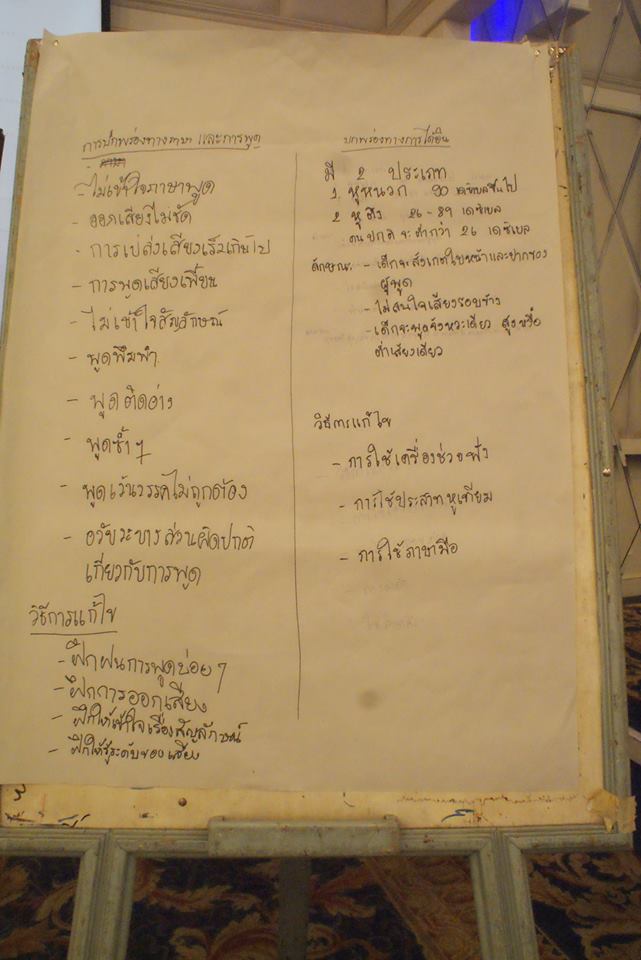 การบกพร่องทางภาษา และการพูด
- ไม่เข้าใจภาษาพูด
- ออกเสียงไม่ชัด
- การเปล่งเสียงเร็วเกินไป
- การพูดเสียงเพี้ยน
- ไม่เข้าใจสัญลักษณ์
- พูดพึมพำ
- พูดติดอ่าง
- พูดซ้ำๆ
- พูดเว้นวรรคไม่ถูกต้อง
- อวัยวะบางส่วนผิดปกติ
เกี่ยวกับการพูด
วิธีการแก้ไข
- ฝึกฝนการพูดบ่อยๆ
- ฝึกการออกเสียง
- ฝึกให้เข้าใจเรื่องสัญลักษณ์
- ฝึกให้รู้ระดับของเสียง
บกพร่องทางการได้ยิน
มี 2 ประเภท
1. หูหนวก 90 เดซิเบลขึ้นไป
2. หูตึง 26 - 89 เดซิเบล
คนปกติจะต่ำกว่า 26 เดซิเบล
ลักษณะ - เด็กจะสังเกตใบหน้าและปากของ
ผู้พูด
- ไม่สนใจเสียงรอบข้าง
- เด็กจะพูดจังหวะเดียว สูงหรือ
ต่ำเสียงเดียว
วิธีการแก้ไข
- การใช้เครื่องช่วยฟัง
- การใช้ประสาทหูเทียม
- การใช้ภาษามือ